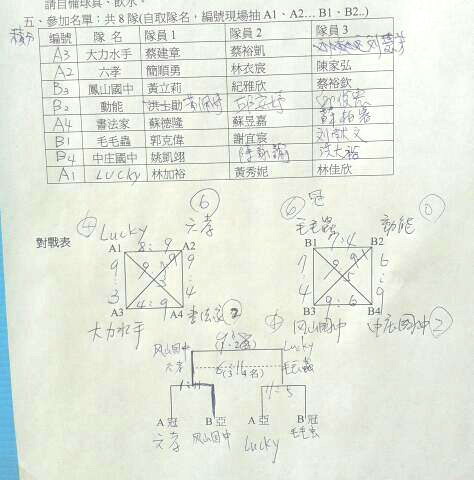 請自備球具、飲水。
五、參加名單：共8隊(自取隊名，編號現場抽A1、A2… B1、B2..)
積分 編號 隊 名 隊員1 隊員2 隊員3
A3 大力水手 蔡建章 蔡裕凱
A2 六孝 簡順勇 林衣宸 陳家弘
B3 鳳山國中 黃立莉 紀雅欣 蔡裕欽
B2 動能
A4 書法家 蘇德隆 蘇昱嘉
B1 毛毛蟲 郭克偉 謝宜宸 刘献文
B4 中庄國中 姚凱翊
A1 Lucky 林加裕 黃秀妮 林佳欣
④ Lucky ⑥ 六孝 ⑥ 冠 毛毛蟲 動能 ⓪
對戰表
A1 8:9 A2 B1 7:4 B2
9:3 9:4 7:4 6:9
A3 4:9 A4 B3 9:6 B4
大力水手 書法家 ② ④ 冈山國中 中庄國中 ②
冈山國中 (1.2名) Lucky
六孝 (3.4名) 毛毛蟲
11:5
A冠 B亞 A亞 B冠
六孝 冈山國中 Lucky 毛毛虫